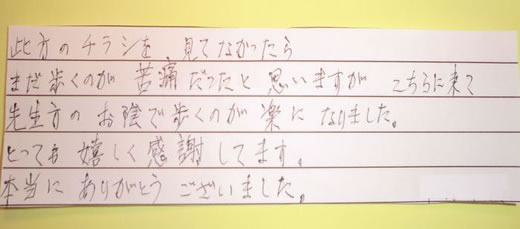 此方のチラシを見てなかったら
まだ歩くのが苦痛だったと思いますが こちらに来て
先生方のお陰で歩くのが楽になりました。
とっても嬉しく感謝してます。
本当にありがとうございました。